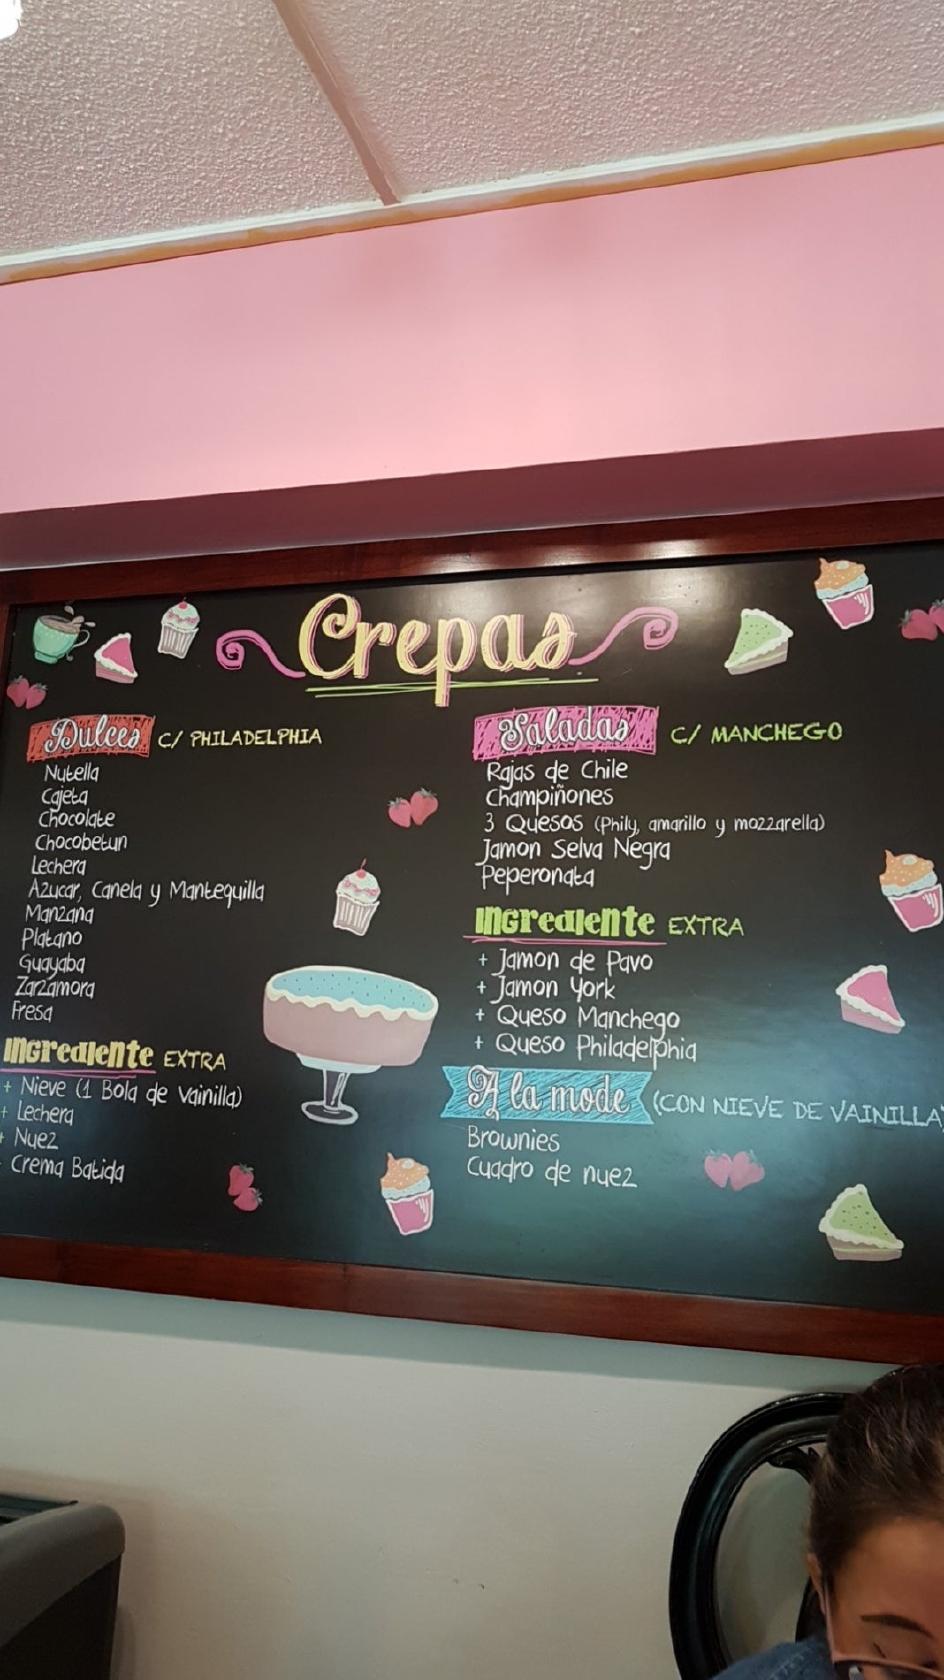 Crepas
Dulces C/ PHILADELPHIA
Nutella
Cajeta
Chocolate
Chocobetun
Lechera
Azucar, Canela y Mantequilla
Manzana
Platano
Guayaba
Zarzamora
Fresa
INGredIente EXTRA
+ Nieve (1 Bola de Vainilla)
+ Lechera
+ Nuez
Crema Batida
Saladas C/ MANCHEGO
Rajas de Chile
Champiñones
3 Quesos (Phily, amarillo y mozzarella)
Jamon Selva Negra
Peperonata
INGredIente EXTRA
+ Jamon de Pavo
+ Jamon York
+ Queso Manchego
+ Queso Philadelphia
A la mode (CON NIEVE DE VAINILLA)
Brownies
Cuadro de nuez